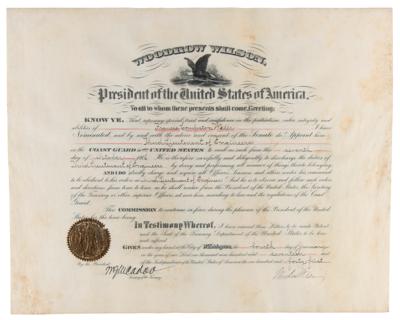 WOODROW WILSON,
President of the United States of America.
To all to whom these presents shall come, Greeting:
KNOW YE, That, reposing special trust and confidence in the patriotism, valor, integrity and
abilities of I have
Nominated, and by and with the advice and consent of the Senate do Appoint him
Third Lieutenant of Engineers
in the COAST GUARD of the UNITED STATES to rank as such from the seventh
day of He is therefore carefully and diligently to discharge the duties of
Third Lieutenant of Engineers by doing and performing all manner of things thereto belonging.
AND I do strictly charge and require all Officers, Seamen and others under his command
to be obedient to his orders as Third Lieutenant of Engineers And he is to observe and follow such orders
and directions from time to time as he shall receive from the President of the United States, the Secretary
of the Treasury or other superior Officers set over him, according to law and the regulations of the Coast
Guard.
This COMMISSION to continue in force during the pleasure of the President of the United
States for the time being.
In Testimony Whereof, I have caused these Letters to be made Patent
and the Seal of the Treasury Department of the United States to be here-
unto affixed
GIVEN under my hand at the City of Washington the fourth day of January
in the year of our Lord one thousand nine hundred and seventeen and
of the Independence of the United States of America the one hundred and forty-first
By the President:
W G McAdoo
Secretary of the Treasury.
Woodrow Wilson